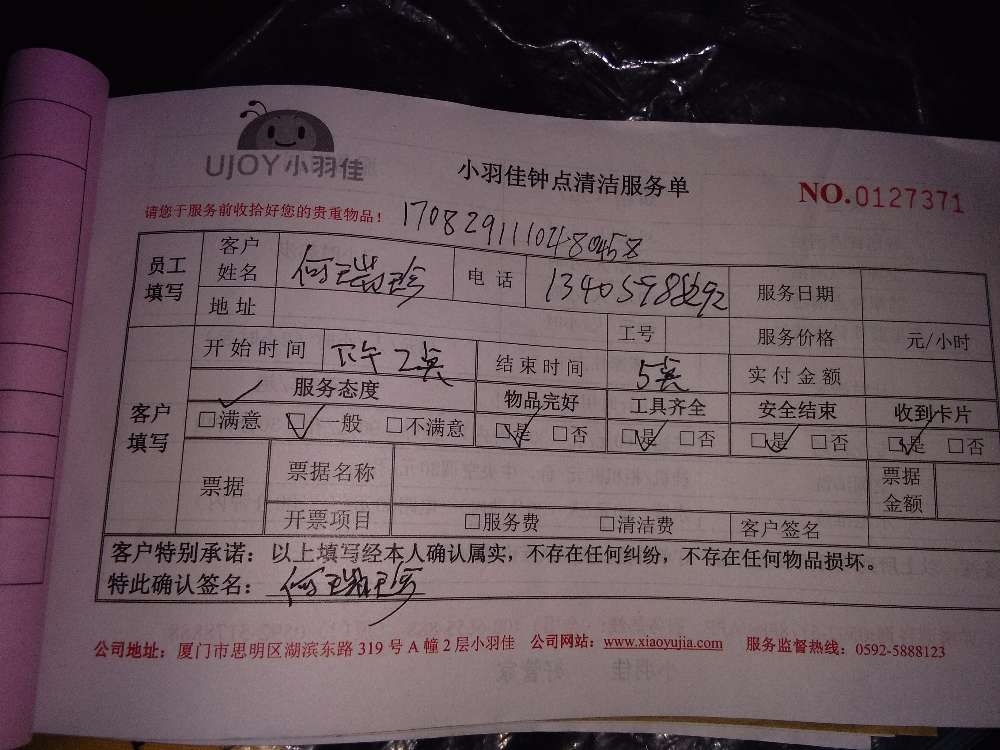 UJOY小羽佳
小羽佳钟点清洁服务单
NO.0127371
请您于服务前收拾好您的贵重物品!
1708291110480458
员工填写 客户姓名 何瑞珍 电话 服务日期
地址 工号 服务价格 元/小时
客户填写 开始时间 下午2点 结束时间 5点 实付金额
服务态度 物品完好 工具齐全 安全结束 收到卡片
□满意 □一般 □不满意 □是 □否 □是 □否 □是 □否 □是 □否
票据 票据名称 票据金额
开票项目 □服务费 □清洁费 客户签名
客户特别承诺:以上填写经本人确认属实,不存在任何纠纷,不存在任何物品损坏。
特此确认签名:何瑞珍
公司地址:厦门市思明区湖滨东路319号A幢2层小羽佳 公司网站:www.xiaoyujia.com 服务监督热线:0592-5888123